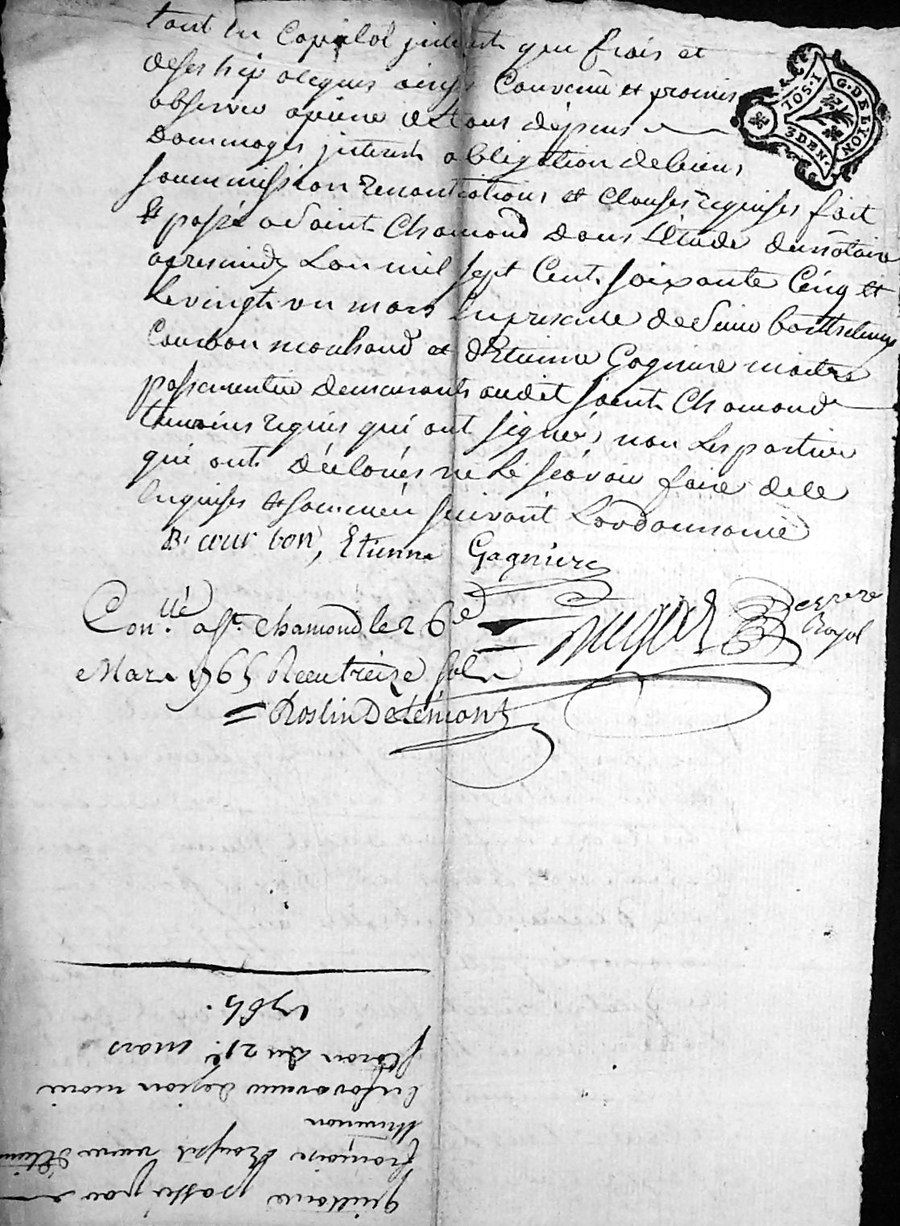 tant en Capital interests que frais et
des hipoteques ainsy Convenu et promis
observer a peine de tous depens
Dommages interests obligation de biens
soummission renontiations et clauses requises fait
et passé a Saint Chamond dans l'étude du notaire
apresmidy L'an mil sept Cent soixante Cinq et
le vingt un mars En presence de Sieur barthelemy
Courbon marchand et d'Etienne Gagniere maitre
passementier demeurants audit Saint Chamond
temoins requis qui ont signés, non les parties
qui ont déclarés ne le sçavoir faire de ce
enquises et sommées suivant L'ordonnance
B. cour bon, Etienne Gagniere
Royal
Con.llé a St. Chamond le 26e
Mars 1765 Reçu treize sols
Roslin Delémont
G. DE LYON
IOS. I
3 DEN.
quittance passée par
françoise Royet veuve
En faveur de jean marie
du 21e. mars
1765.